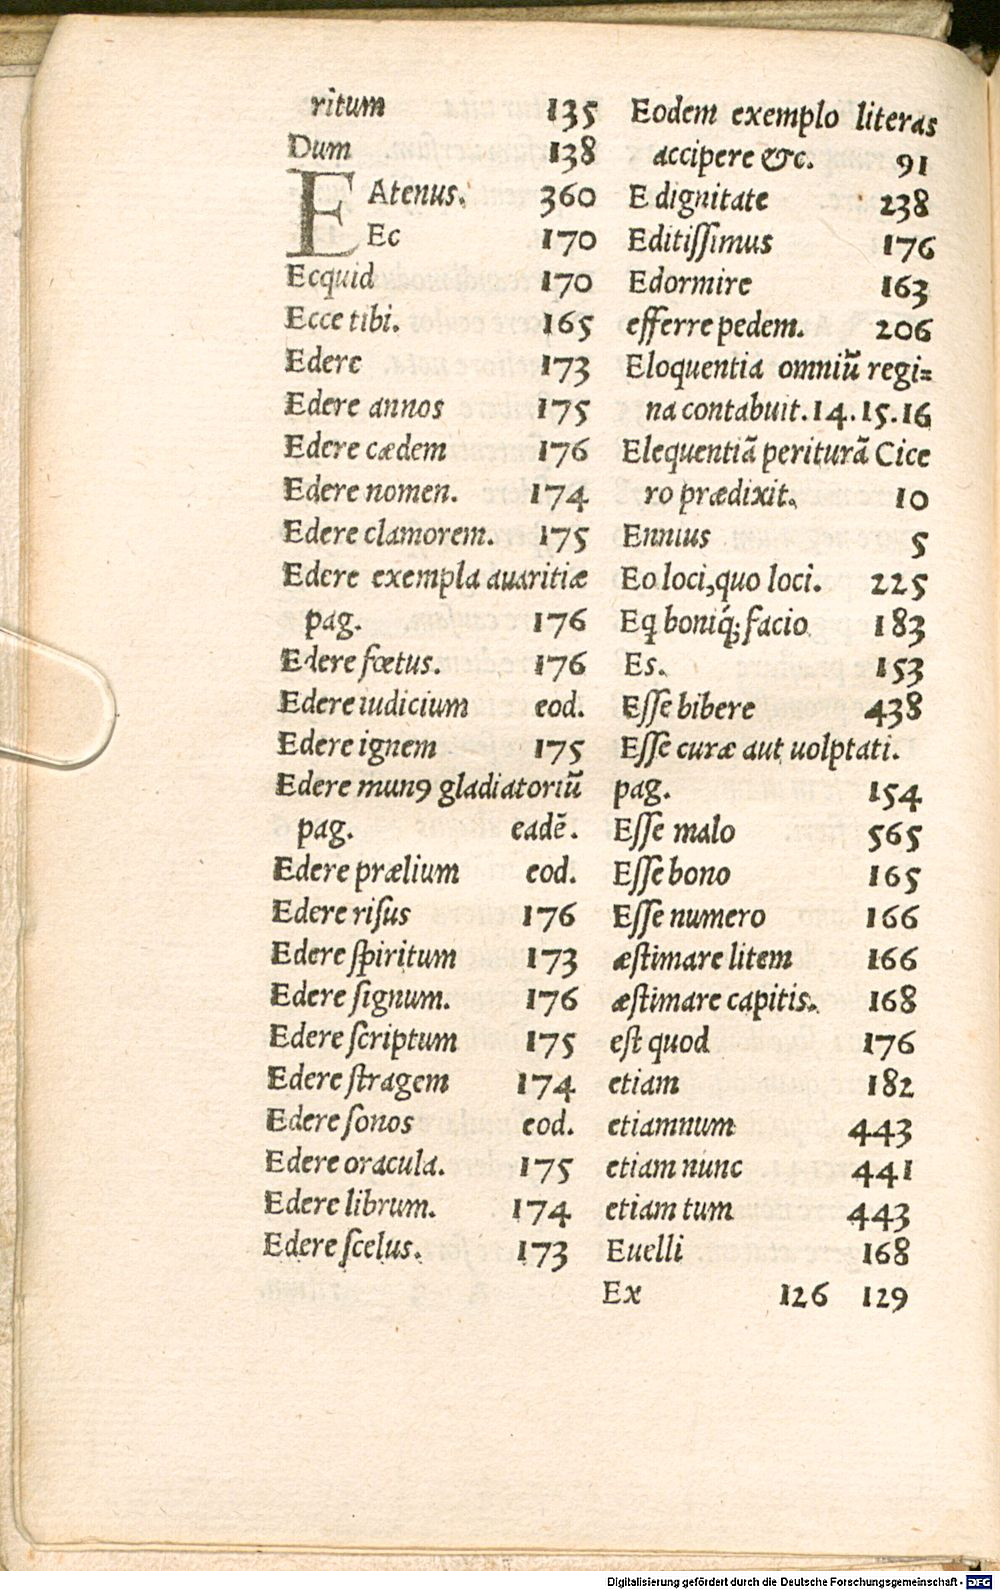 ritum 135
Dum 138
EAtenus. 360
Ec 170
Ecquid 170
Ecce tibi. 165
Edere 173
Edere annos 175
Edere cædem 176
Edere nomen. 174
Edere clamorem. 175
Edere exempla auaritiæ
pag. 176
Edere fœtus. 176
Edere iudicium eod.
Edere ignem 175
Edere munꝯ gladiatoriũ
pag. eadẽ.
Edere prælium eod.
Edere riſus 176
Edere ſpiritum 173
Edere ſignum. 176
Edere ſcriptum 175
Edere ſtragem 174
Edere ſonos eod.
Edere oracula. 175
Edere librum. 174
Edere ſcelus. 173
Eodem exemplo literas
accipere &c. 91
E dignitate 238
Editiſſimus 176
Edormire 163
efferre pedem. 206
Eloquentia omniũ regi=
na contabuit. 14. 15. 16
Elequentiã periturã Cice
ro prædixit. 10
Ennius 5
Eo loci, quo loci. 225
Eq boniq́; facio 183
Es. 153
Eſſe bibere 438
Eſſe curæ aut uolptati.
pag. 154
Eſſe malo 565
Eſſe bono 165
Eſſe numero 166
æſtimare litem 166
æſtimare capitis. 168
eſt quod 176
etiam 182
etiamnum 443
etiam nunc 441
etiam tum 443
Euelli 168
Ex 126 129
Digitalisierung gefördert durch die Deutsche Forschungsgemeinschaft - DFG